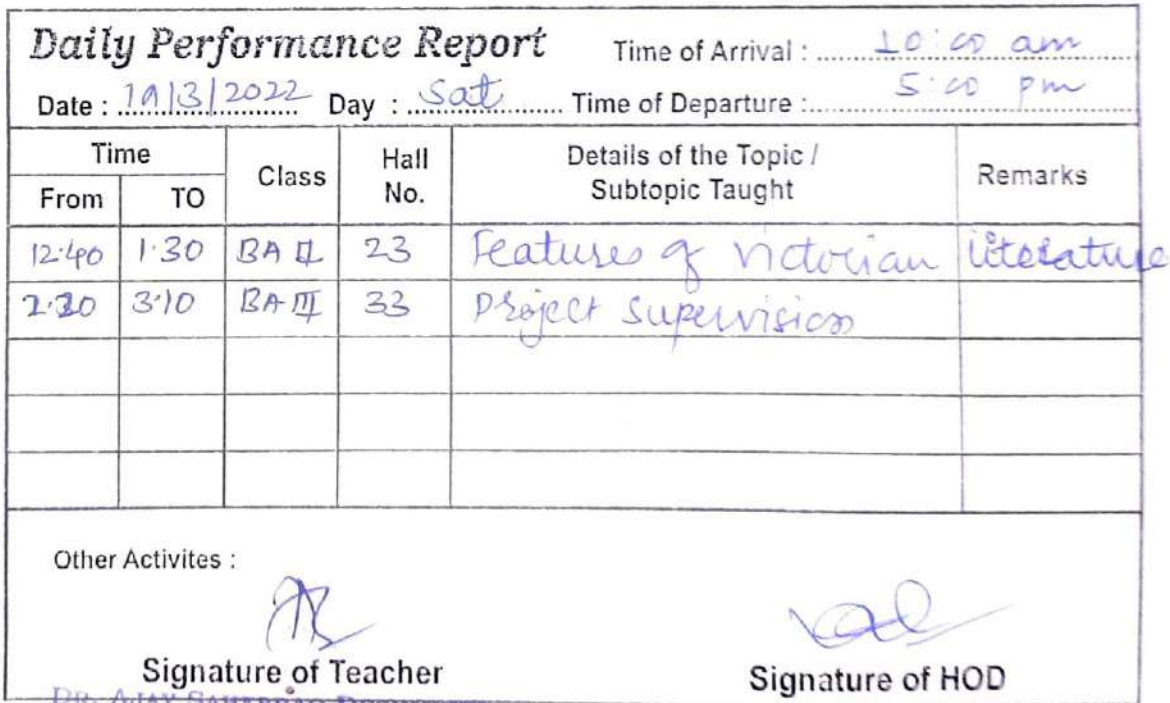 Daily Performance Report Time of Arrival : 10:00 am
Date : 19/3/2022 Day : Sat Time of Departure : 5:00 pm
Time Class Hall No. Details of the Topic / Subtopic Taught Remarks
From TO
12.40 1.30 BA II 23 Features of Victorian literature
2.20 3.10 BA III 33 Project supervision
Other Activites :
Signature of Teacher Signature of HOD
DR. AJAY